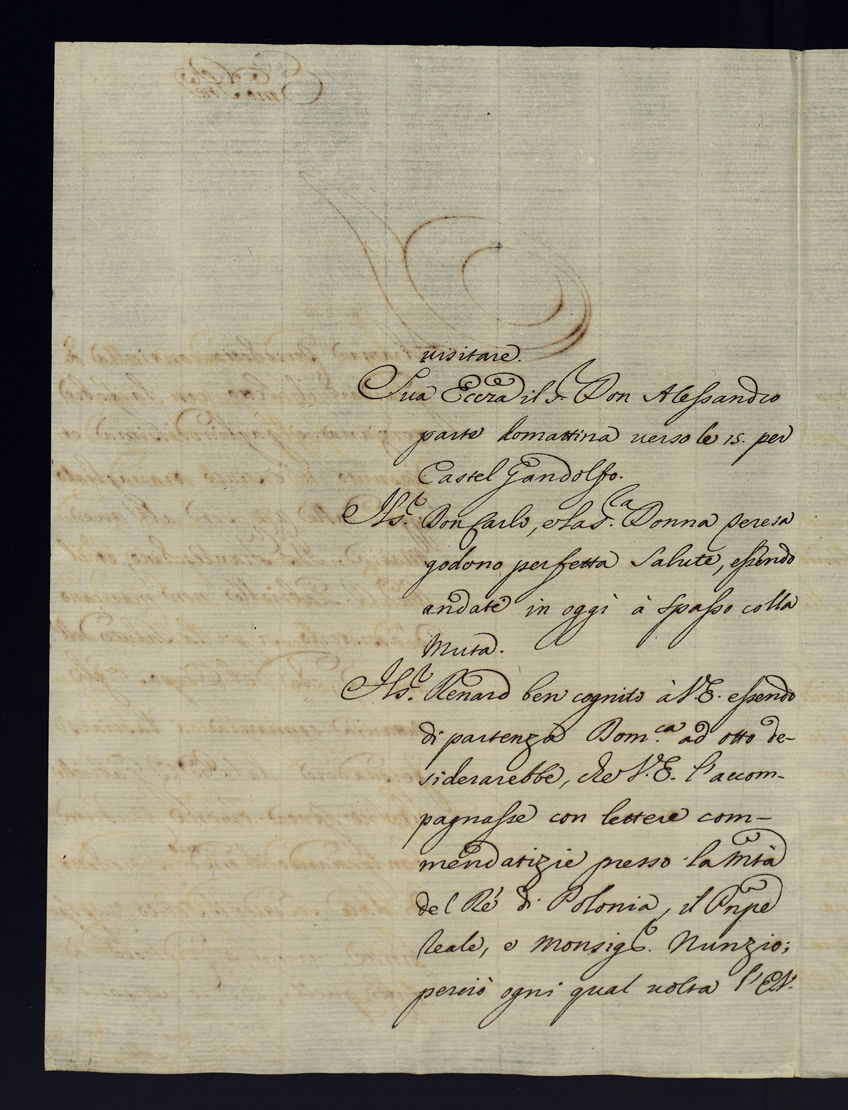 visitare.
Sua Ecc.za il S.r Don Alessandro
parte domattina verso le 15. per
Castel Gandolfo.
Il S.r Don Carlo, e la S.ra Donna Teresa
godono perfetta salute, essendo
andate in oggi à spasso colla
Muta.
Il S.r Renard ben cognito à V.E. essendo
di partenza Dom.ca ad otto de-
siderarebbe, che V.E. l'accom-
pagnasse con lettere com-
mendatizie presso la Mtà
del Ré di Polonia, il Pnpe
Reale, e Monsig.r Nunzio;
perciò ogni qual volta l'E.V.